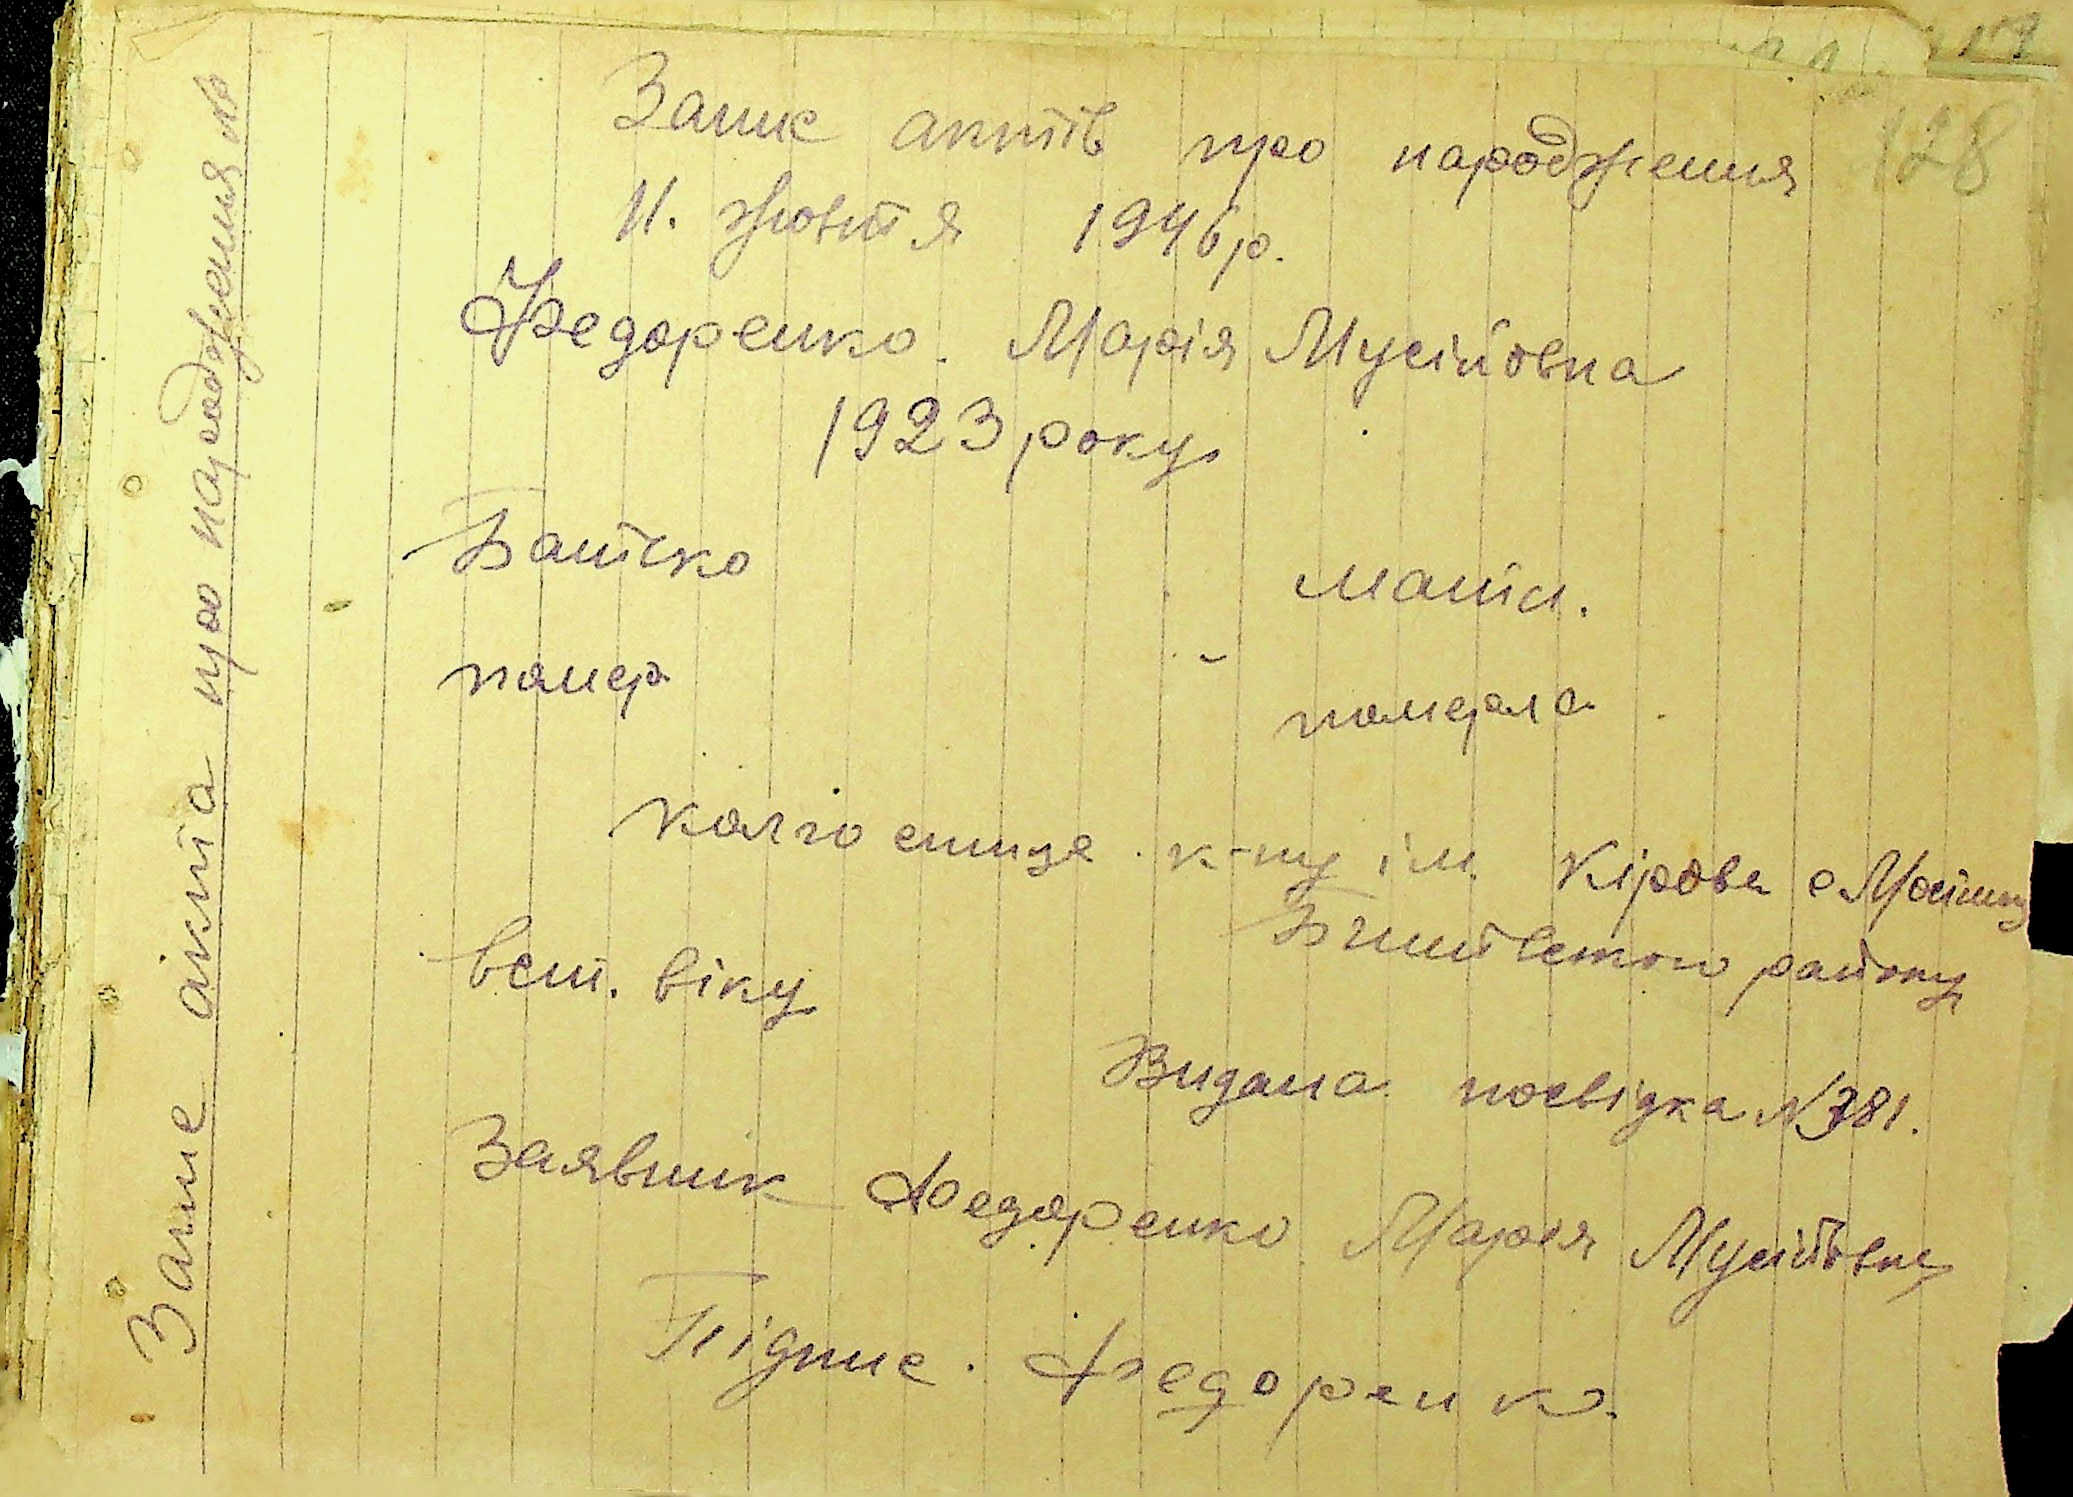 128
Запис актів про народження
11. жовтня 1946 р.
Федоренко. Марія Мусіївна
1923 року
Батько мати.
помер померла
колгоспиця. к-пу ім. Кірова с
району
вст. віку
Видана посвідка №381.
Заявник Федоренко Марія Мусіївна
Підпис. Федоренко.
Запис акта про народження №